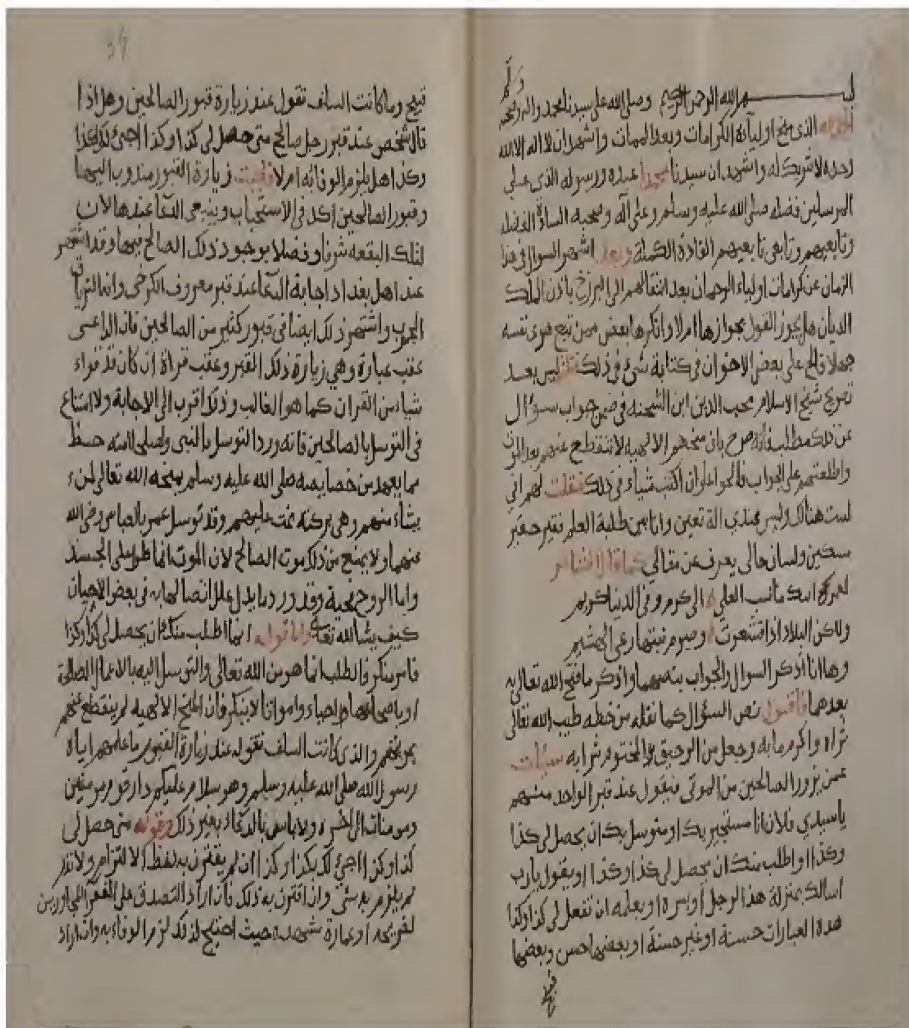 بسم الله الرحمن الرحيم وصلى الله على سيدنا محمد واله وصحبه
وسلم
الحمد لله الذي منح اوليآئه الكرامات وبعد الممات واشهد ان لا اله الا الله
وحده لا شريك له واشهد ان سيدنا محمدا عبده ورسوله الذي على
المرسلين فضله صلى الله عليه وسلم وعلى آله وصحبه السادة الفضله
وتابعيهم وتابعي تابعيهم القادة الكملة وبعد اشتهر السوال في هذا
الزمان عن كرامات اولياء الرحمان بعد انتقالهم الى البرزخ باذن الملك
الديان هل يجوز القول بجوازها ام لا وانكرها بعض ممن تبع هوى نفسه
جهلا والح على بعض الاخوان في كتابة شئ في ذلك فقلت ليس بعد
تصريح شيخ الاسلام محب الدين ابن الشحنه في ضمن جواب سؤال
عن ذلك مطلب فانه صرح بان منحهم الالهية لا تنقطع عنهم بعد الموت
واطلعتهم على الجواب فالحوا على ان اكتب شياء في ذلك فقلت لهم اني
لست هناك وليس عندي آلة تعين وانا بين طلبة العلم فقير حقير
مسكين ولسان حالي يعرف عن مقالي كما قال الشاعر
لعمر ابيك ما نسب العلي الى كرم وفي الدنيا كريم
ولكن البلاد اذا اقشعرت وصوح نبتها رعي الهشيم
وها انا اذكر السوال والجواب بنصهما واذكر ما فتح الله تعالى به
بعدهما فاقول نص السؤال كما نقله من خطه طيب الله تعالى
ثراه واكرم مابه وجعل من الرحيق المختوم شرابه سئلت
عمن يزور الصالحين من الموتى فيقول عند قبر الواحد منهم
يا سيدي فلان انا مستجير بك او متوسل بك ان يحصل لي كذا
وكذا او اطلب منك ان يحصل لي كذا وكذا او يقول يارب
اسالك بمنزلة هذا الرجل او بسره او بعلمه ان تفعل لي كذا وكذا
هذه العبارات حسنة او غير حسنة او بعضها حسن وبعضها
قبيح
34
قبيح وما كانت السلف تقول عند زيارة قبور الصالحين وهل اذا
قال شخص عند قبر رجل صالح متى حصل لي كذا وكذا اجئ لك بكذا
وكذا هل يلزم الوفا به ام لا فاجبت زيارة القبور مندوب اليها
وقبور الصالحين اكد في الاستحباب وينبغي الدعا عندها لان
لتلك البقعه شرفا وفضلا بوجود ذلك الصالح فيها وقد اشتهر
عند اهل بغداد اجابة الدعا عند قبر معروف الكرخي وانه الترياق
المجرب واشتهر ذلك ايضا في قبور كثير من الصالحين فان الداعي
عقب عبادة وهي زيارة ذلك القبر وعقب قراة ان كان قد قراء
شيا من القران كما هو الغالب وذلك اقرب الى الاجابة ولا امتناع
في التوسل بالصالحين فانه ورد التوسل بالنبي وبصلى امته حسنا
مما يعهد من خصايصه صلى الله عليه وسلم يمنحه الله تعالى لمن
يشاء منهم وهي بركته عمت عليهم وقد توسل عمر بالعباس رضي الله
عنهما ولا يمنع من ذلك موته الصالح لان الموت انما طرا على الجسد
واما الروح فحية وقد ورد ما يدل على اتصالها به في بعض الاحيان
كيف يشا الله تعالى واما قوله انما اطلب منك ان يحصل لي كذا وكذا
فامر منكر فالطلب انما هو من الله تعالى والتوسل اليه بالاعمال الصالحة
او باصحابها احياء وامواتا لا ينكر فان المنح الالهية لم ينقطع عنهم
بموتهم والذي كانت السلف تقوله عند زيارة القبور ما علمهم اياه
رسول الله صلى الله عليه وسلم وهو سلام عليكم دار قوم مومنين
ومومنات الى اخره ولا باس بالدعاء بغير ذلك وقوله متى حصل لي
كذا وكذا اجئ لك بكذا وكذا ان لم يقترن به لفظ الالتزام ولا نذر
لم يلزم به شئ وان اقترن به ذلك فان اراد التصدق على الفقرآ المجاورين
لضريحه او عمارة مشهده حيث احتيج لذلك لزم الوفاء به وان اراد